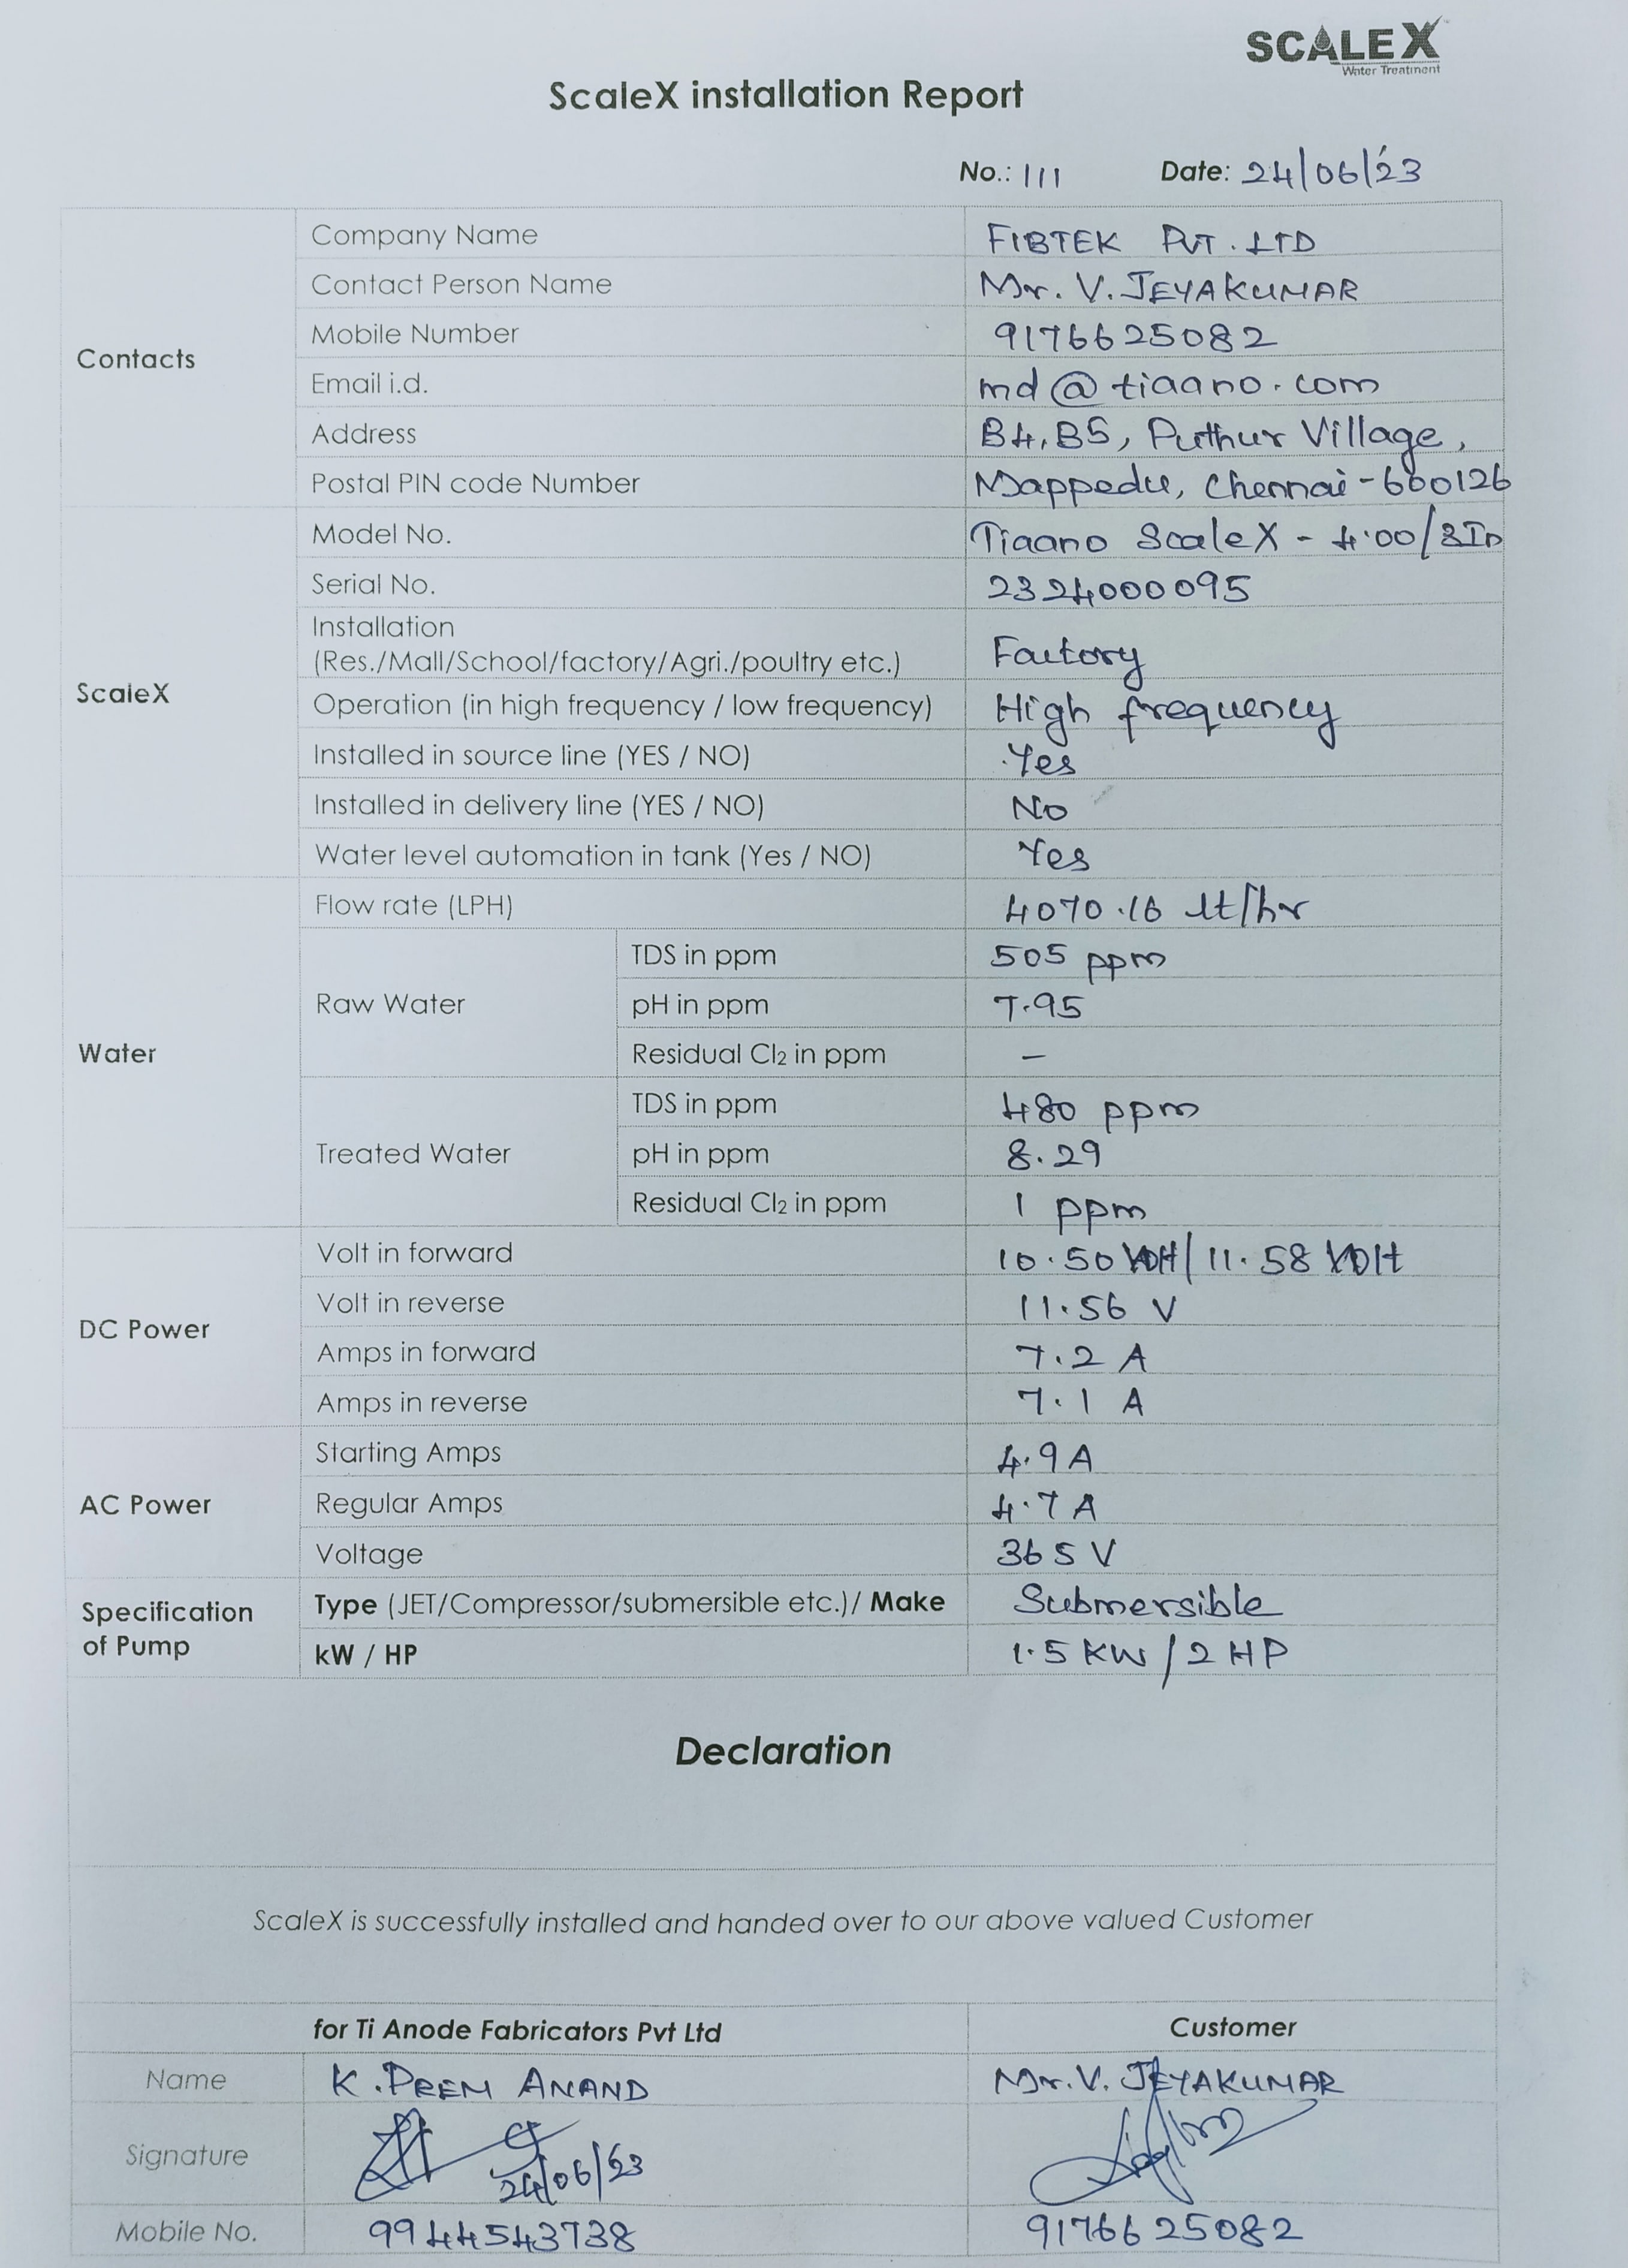 SCALEX
Water Treatment
ScaleX installation Report
No.: 111 Date: 24/06/23
Contacts
Company Name FIBTEK PVT. LTD
Contact Person Name Mr. V. JEYAKUMAR
Mobile Number 9176625082
Email i.d. md@tiaano.com
Address B4, B5, Puthur Village,
Postal PIN code Number Mappedu, Chennai - 600126
ScaleX
Model No. Tiaano ScaleX - 4.00/3In
Serial No. 2324000095
Installation
(Res./Mall/School/factory/Agri./poultry etc.) Factory
Operation (in high frequency / low frequency) High frequency
Installed in source line (YES / NO) Yes
Installed in delivery line (YES / NO) No
Water level automation in tank (Yes / NO) Yes
Water
Flow rate (LPH) 4070.16 lt/hr
Raw Water
TDS in ppm 505 ppm
pH in ppm 7.95
Residual Cl2 in ppm –
Treated Water
TDS in ppm 480 ppm
pH in ppm 8.29
Residual Cl2 in ppm 1 ppm
DC Power
Volt in forward 10.50 Volt / 11.58 Volt
Volt in reverse 11.56 V
Amps in forward 7.2 A
Amps in reverse 7.1 A
AC Power
Starting Amps 4.9 A
Regular Amps 4.7 A
Voltage 365 V
Specification
of Pump
Type (JET/Compressor/submersible etc.)/ Make Submersible
kW / HP 1.5 KW / 2 HP
Declaration
ScaleX is successfully installed and handed over to our above valued Customer
for Ti Anode Fabricators Pvt Ltd Customer
Name K. PREM ANAND Mr. V. JEYAKUMAR
Signature 24/06/23
Mobile No. 9944543738 9176625082